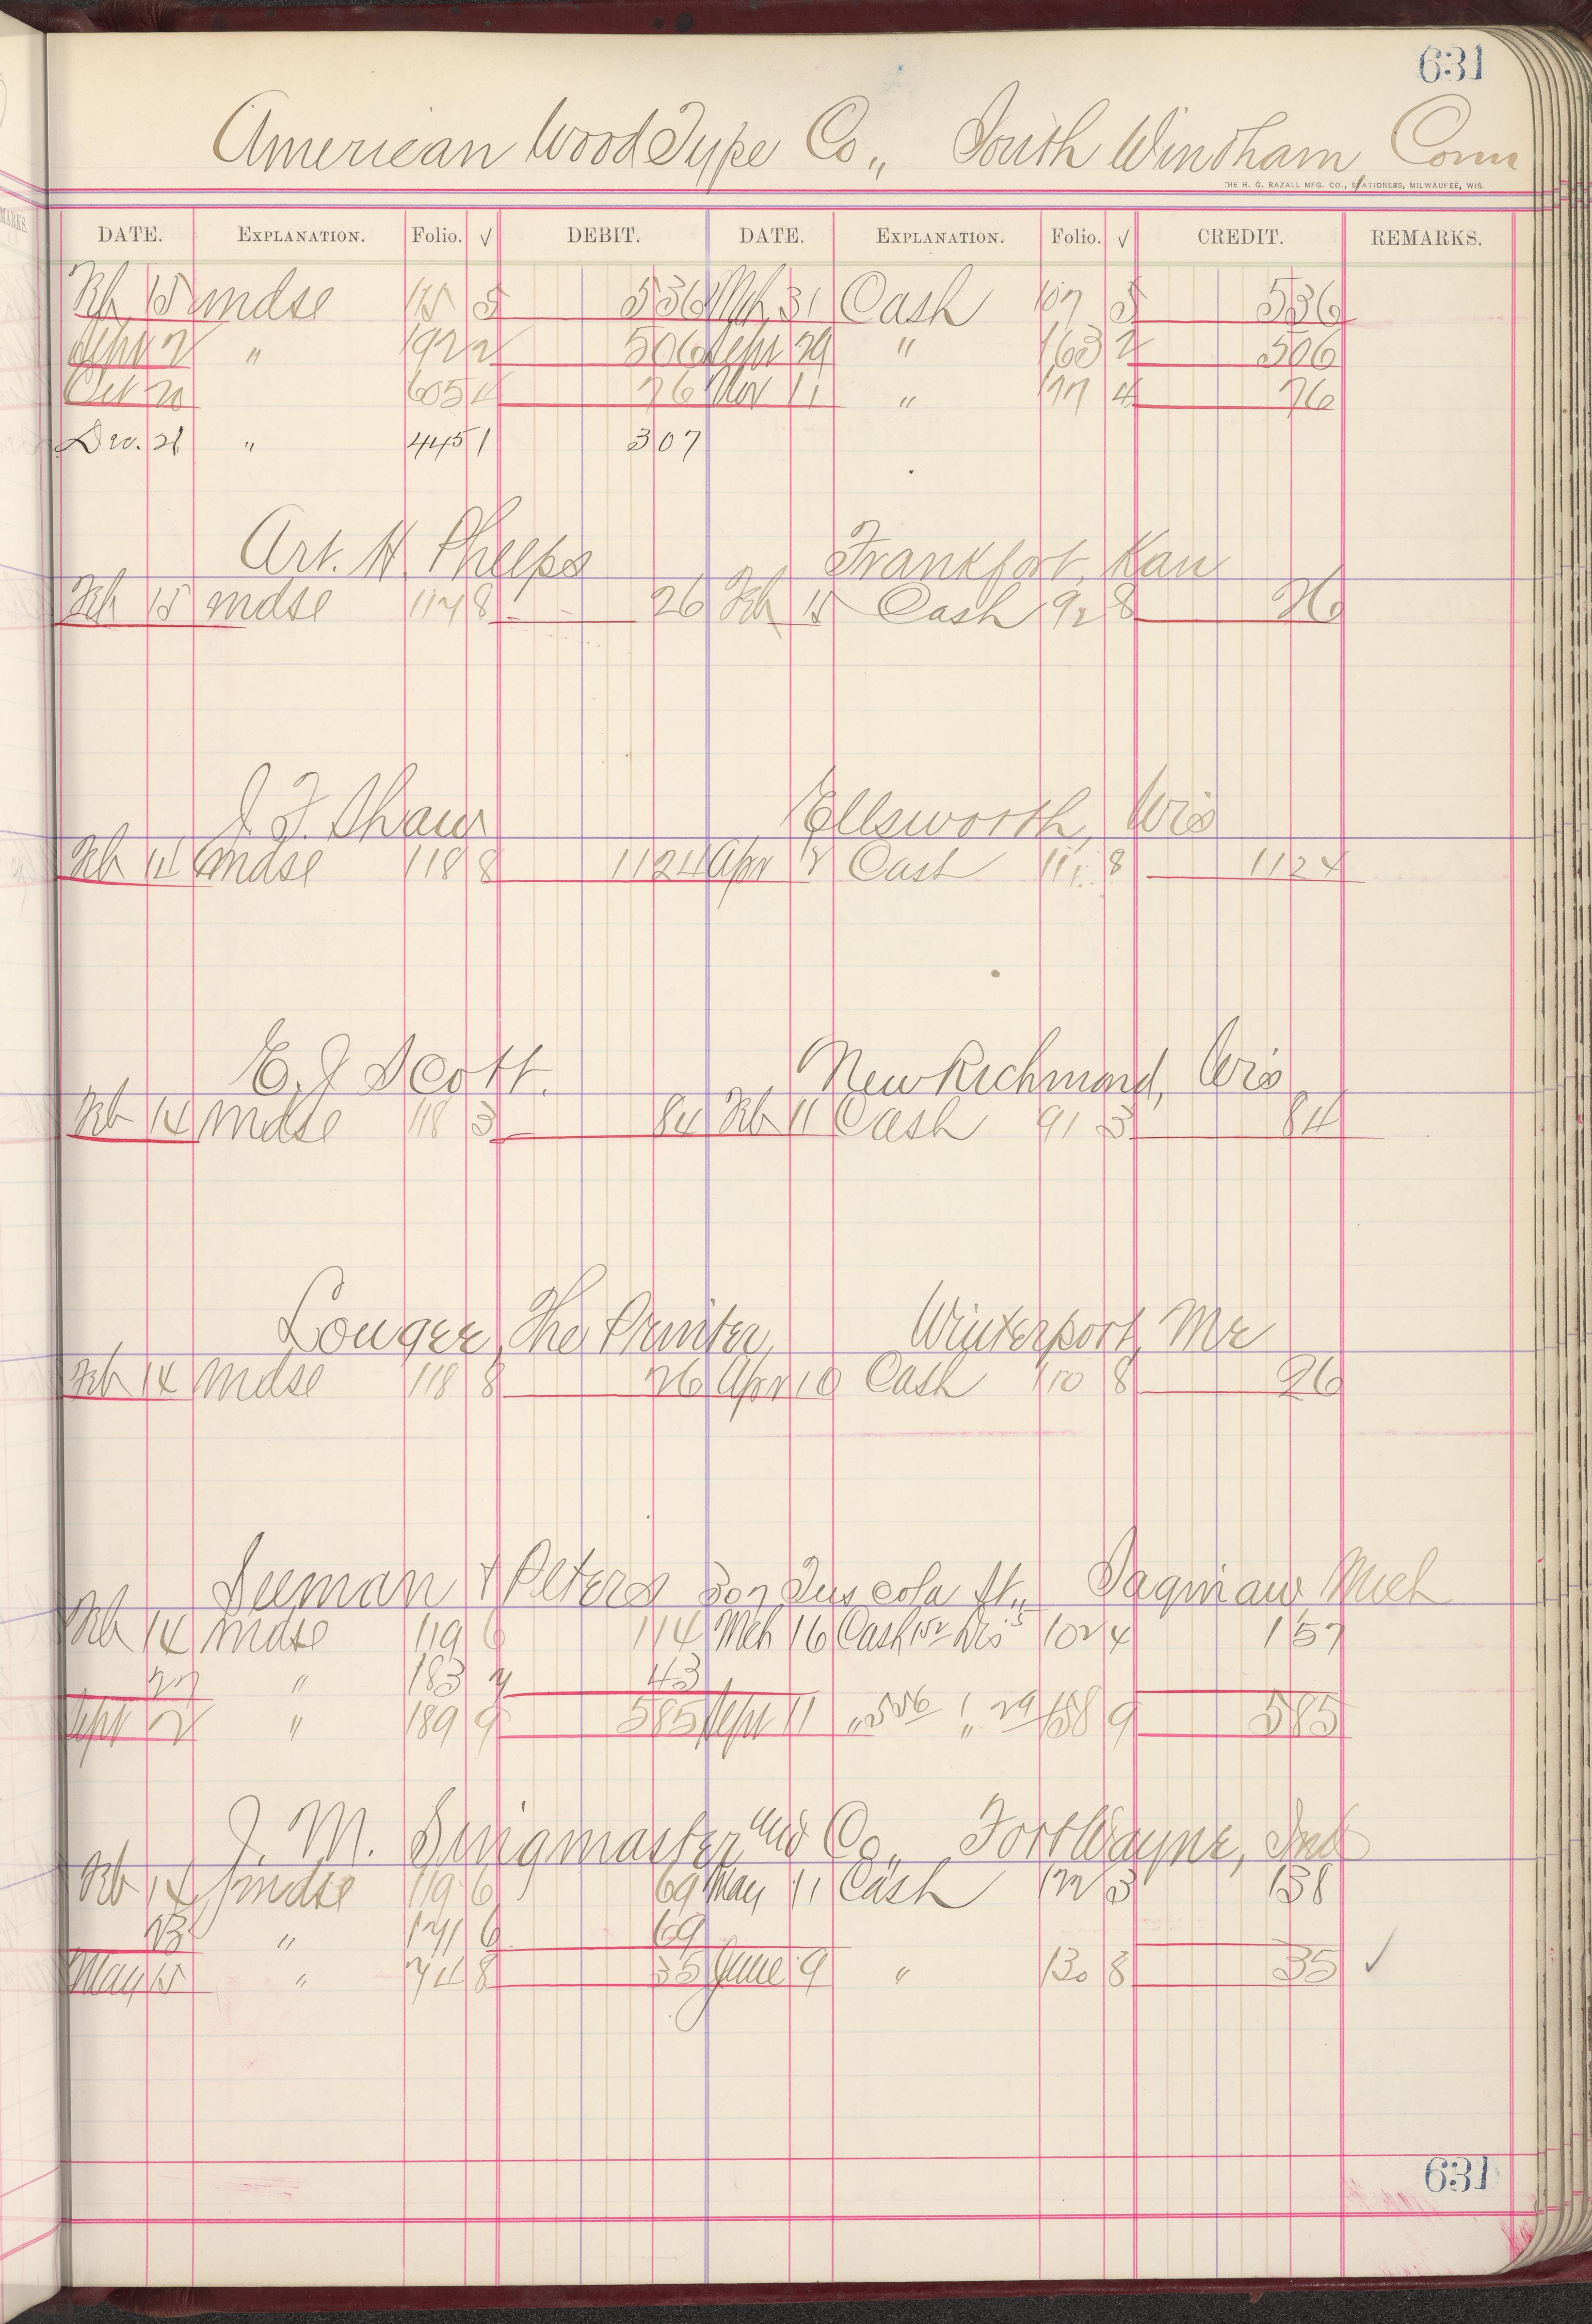 631
American Wood Type Co., South Windham Conn
THE H. G. RAZALL MFG. CO., STATIONERS, MILWAUKEE, WIS.
DATE. EXPLANATION. Folio. √ DEBIT. DATE. EXPLANATION. Folio. √ CREDIT. REMARKS.
Feb 15 mdse 5 536 Mch 31 Cash 107 5 536
Sept 2 " 192 2 506 Sept 29 " 163 2 506
Oct 20 605 4 76 Nov 11 " 177 4 76
Dec. 21 " 445 1 307
Art. H. Phelps Frankfort, Kan
Feb 15 mdse 8 26 Feb 15 Cash 92 8 26
J. F. Shaw Ellsworth, Wis
Feb 14 mdse 118 8 1124 Apr Cash 111 8 1124
E. J Scott. New Richmond, Wis
Feb 14 mdse 118 3 84 Feb 11 Cash 91 3 84
Lougee, The Printer, Winterport, Me
Feb 14 mdse 118 8 26 Apr 10 Cash 110 8 26
Seeman & Peters 307 Tuscola St., Saginaw Mich
Feb 14 mdse 119 6 114 Mch 16 Cash 152 Dis 5 102 4 157
" 183 43
Sept 2 " 189 9 585 Sept 11 " 556 " 29 158 9 585
J. M. Singmaster and Co., Fort Wayne, Ind
Feb 14 mdse 119 6 69 May 11 Cash 122 3 138
" 6 69
May 15 " 74 8 35 June 9 " 130 8 35 ✓
631